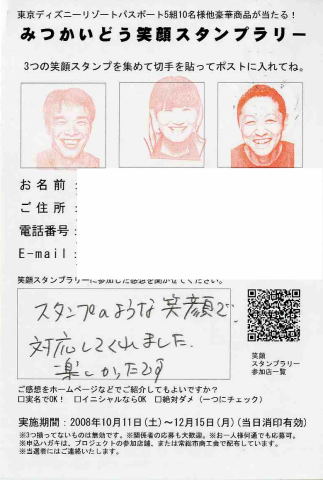 東京ディズニーリゾートパスポート5組10名様他豪華商品が当たる！
みつかいどう笑顔スタンプラリー
3つの笑顔スタンプを集めて切手を貼ってポストに入れてね。
お名前：
ご住所：
電話番号：
E-mail：
笑顔スタンプラリーに参加した感想を聞かせてください。
スタンプのような笑顔で
対応してくれました
楽しかったです
笑顔
スタンプラリー
参加店一覧
ご感想をホームページなどでご紹介してもよいですか？
□実名でOK！ □イニシャルならOK □絶対ダメ（一つにチェック）
実施期間：2008年10月11日(土)～12月15日(月)(当日消印有効)
※3つ揃ってないものは無効です。※関係者の応募も大歓迎。※お一人様何通でも応募可。
※申込ハガキは、プロジェクトの参加店舗、または常総市商工会で配布しています。
※当選者にはご連絡いたします。